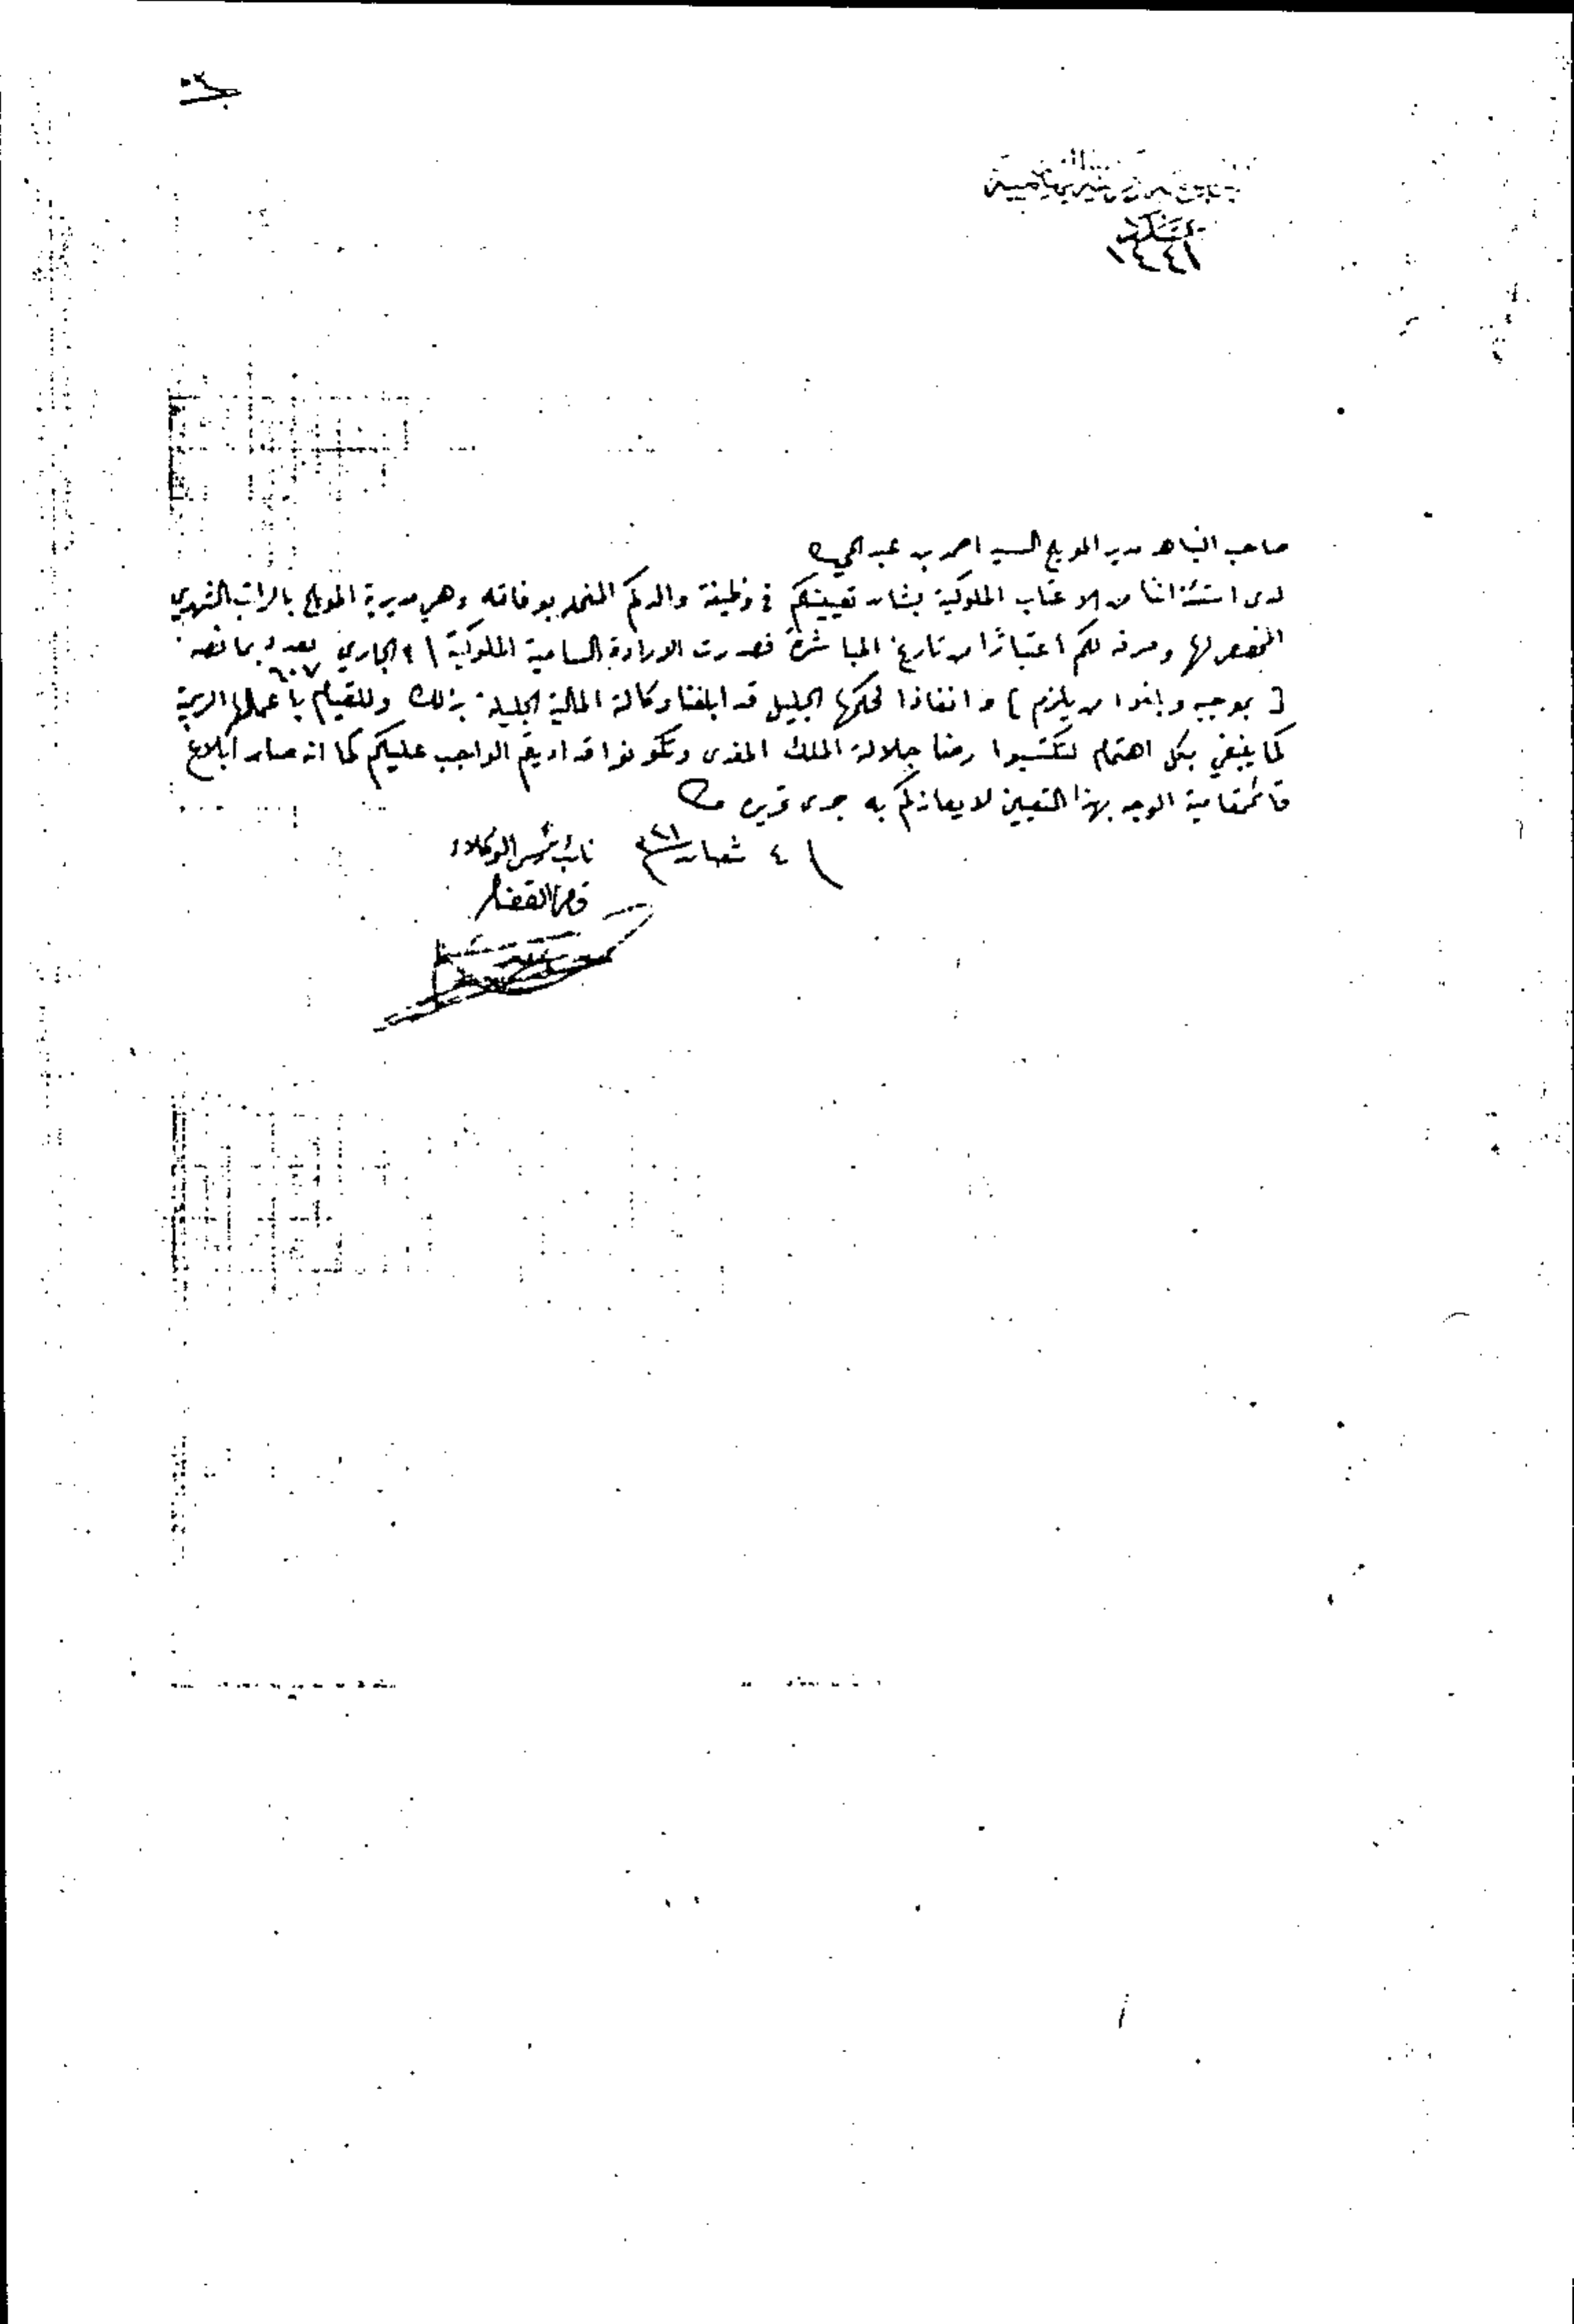 ١٤٤١
صاحب النباهه مدير المويلح السيد احمد بن عبد الحي
لدى استئذاننا من الاعتاب الملوكية بشان تعيينكم في وظيفة والدكم المنحلة بوفاته وهي مديرية المويلح بالراتب الشهري
المخصص لها وصرفه لكم اعتبارًا من تاريخ المباشرة فصدرت الارادة السامية الملوكية الجاري بعدد ٦٠٧ بما نصه
[ بموجبه وبلغوا من يلزم ] وانفاذا لحكمها الجليل قد ابلغنا وكالة المالية الجليلة بذلك وللقيام بأعمالها الرسمية
كما ينبغي بكل اهتمام لتكتسبوا رضا جلالة الملك المفدى وتكونوا قد اديتم الواجب عليكم كما انه صار ابلاغ
قائمقامية الوجه بهذا التعيين لا يعازكم به جرى تحريره
شعبان نائب رئيس الوكلاء
قاضي القضاة